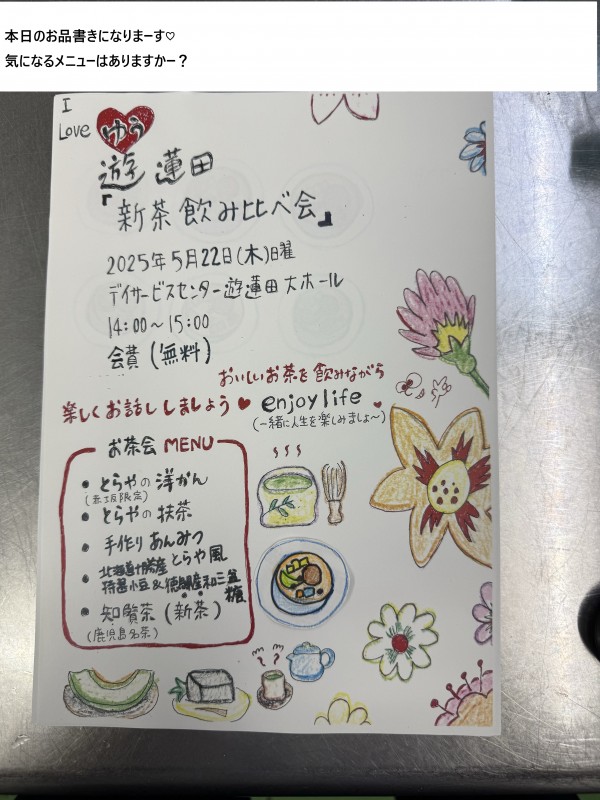 本日のお品書きになりまーす♡
気になるメニューはありますかー？
I
Love ゆう
遊 蓮田
『新茶飲み比べ会』
2025年5月22日(木)日曜
デイサービスセンター遊蓮田 大ホール
14:00～15:00
会費(無料)
おいしいお茶を飲みながら
楽しくお話ししましょう♥ enjoy life ♥
(一緒に人生を楽しみましょ～)
お茶会 MENU
• とらやの 洋かん
(赤坂限定)
• とらやの 抹茶
• 手作り あんみつ
• 北海道十勝産 とらや風
特選小豆&徳島産和三盆糖
• 知覧茶 (新茶)
(鹿児島名茶)